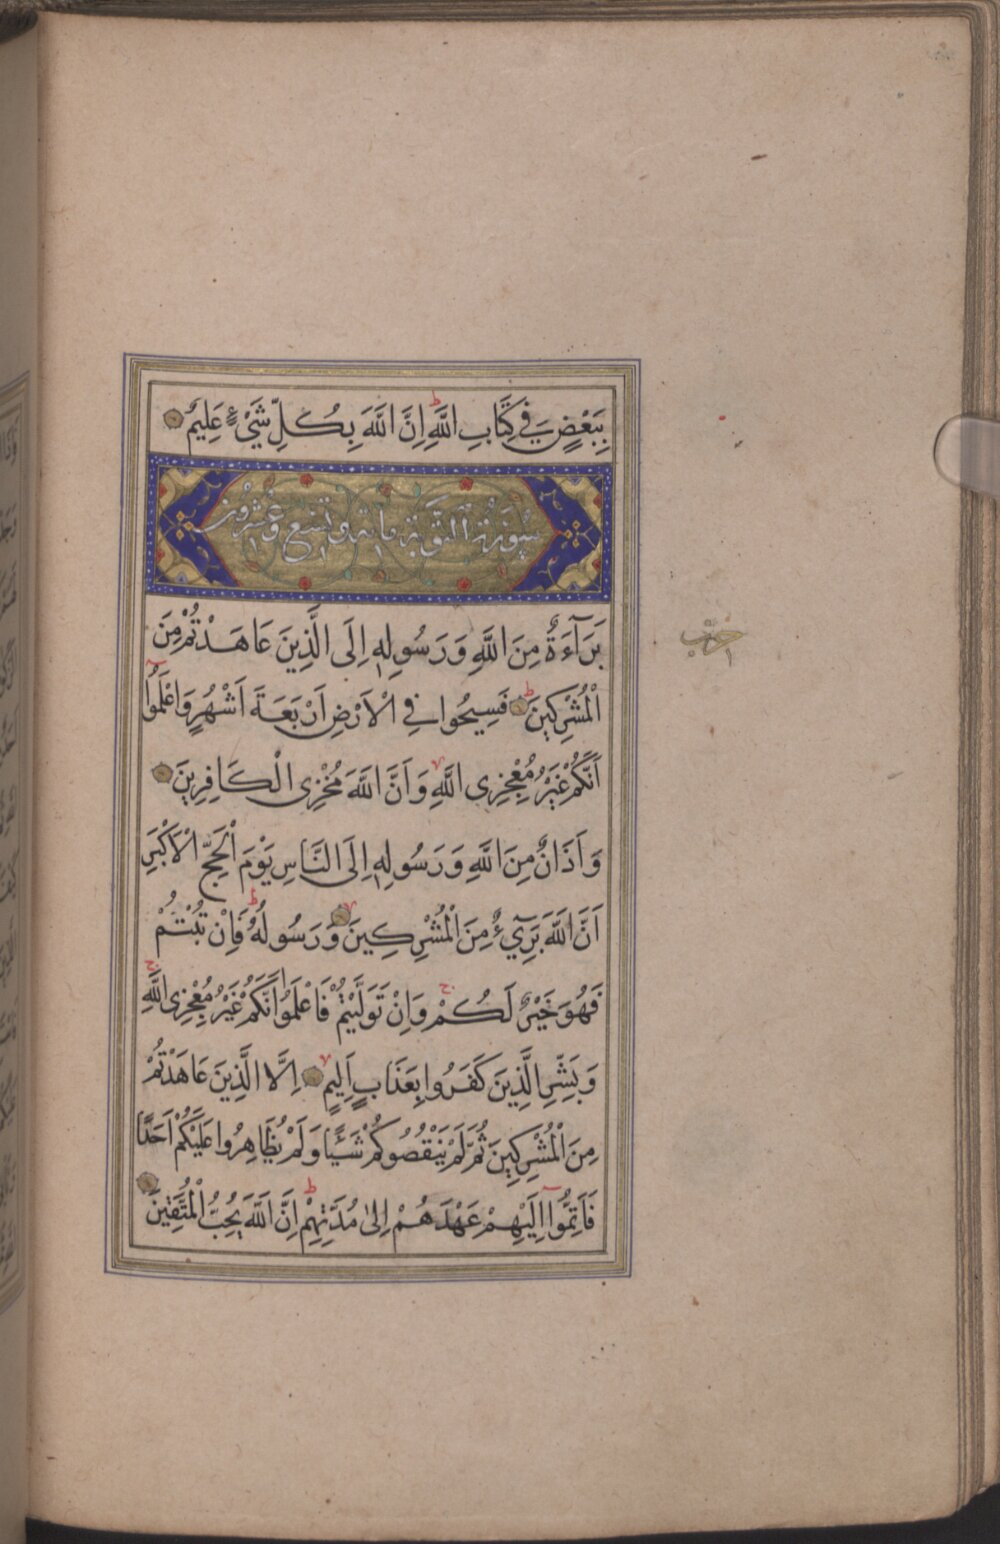 بِبَعْضٍ فِي كِتَابِ اللَّهِ ط اِنَّ اللَّهَ بِكُلِّ شَيْءٍ عَلِيمٌ
سُورَةُ التَّوْبَةِ مائة وتسع وعشرون
بَرَآءَةٌ مِنَ اللَّهِ وَرَسُولِهِ اِلَى الَّذِينَ عَاهَدْتُمْ مِنَ
الْمُشْرِكِينَ ط فَسِيحُوا فِي الْاَرْضِ اَرْبَعَةَ اَشْهُرٍ وَاعْلَمُوآ
اَنَّكُمْ غَيْرُ مُعْجِزِى اللَّهِ لا وَاَنَّ اللَّهَ مُخْزِى الْكَافِرِينَ
وَاَذَانٌ مِنَ اللَّهِ وَرَسُولِهِ اِلَى النَّاسِ يَوْمَ الْحَجِّ الْاَكْبَرِ
اَنَّ اللَّهَ بَرِيٓءٌ مِنَ الْمُشْرِكِينَ لا وَرَسُولُهُ ط فَاِنْ تُبْتُمْ
فَهُوَ خَيْرٌ لَكُمْ ج وَاِنْ تَوَلَّيْتُمْ فَاعْلَمُوا اَنَّكُمْ غَيْرُ مُعْجِزِى اللَّهِ ج
وَبَشِّرِ الَّذِينَ كَفَرُوا بِعَذَابٍ اَلِيمٍ لا اِلَّا الَّذِينَ عَاهَدْتُمْ
مِنَ الْمُشْرِكِينَ ثُمَّ لَمْ يَنْقُصُوكُمْ شَيْئًا وَلَمْ يُظَاهِرُوا عَلَيْكُمْ اَحَدًا
فَاَتِمُّوآ اِلَيْهِمْ عَهْدَهُمْ اِلىٰ مُدَّتِهِمْ ط اِنَّ اللَّهَ يُحِبُّ الْمُتَّقِينَ
حزب